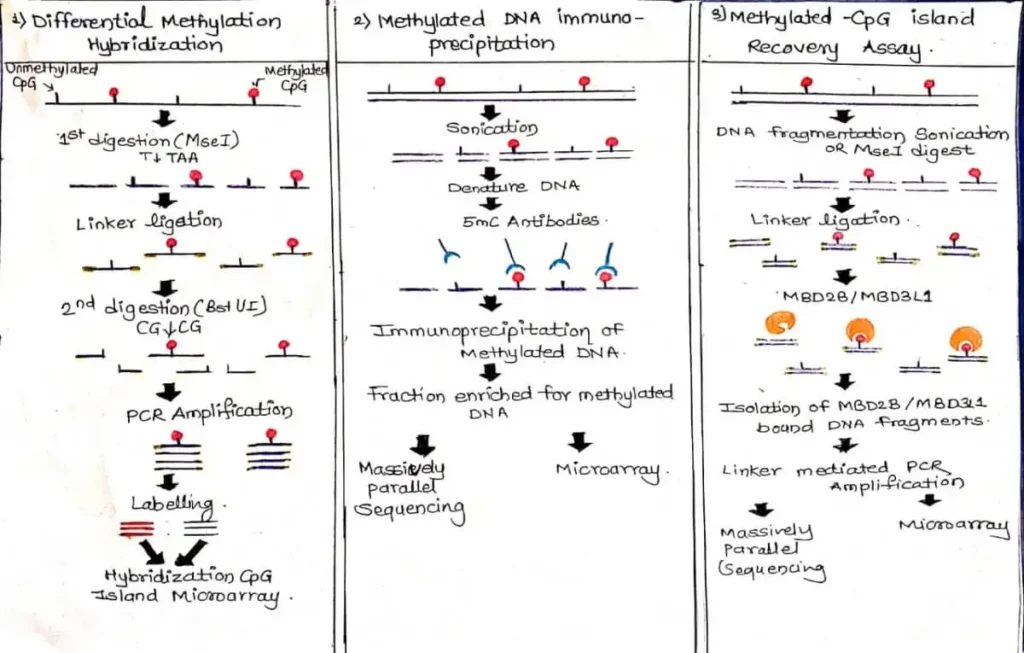 1) Differential Methylation
Hybridization
Unmethylated
CpG
Methylated
CpG
1st digestion (MseI)
T↓TAA
Linker ligation
2nd digestion (BstUI)
CG↓CG
PCR Amplification
Labelling.
Hybridization CpG
Island Microarray.
2) Methylated DNA immuno-
precipitation
Sonication
Denature DNA
5mC Antibodies.
Immunoprecipitation of
Methylated DNA.
Fraction enriched for methylated
DNA
Massively
parallel
Sequencing
Microarray.
3) Methylated -CpG island
Recovery Assay.
DNA fragmentation Sonication
OR MseI digest
Linker ligation.
MBD2B/MBD3L1
Isolation of MBD2B/MBD3L1
bound DNA fragments.
Linker mediated PCR
Amplification
Massively
Parallel
Sequencing
Microarray